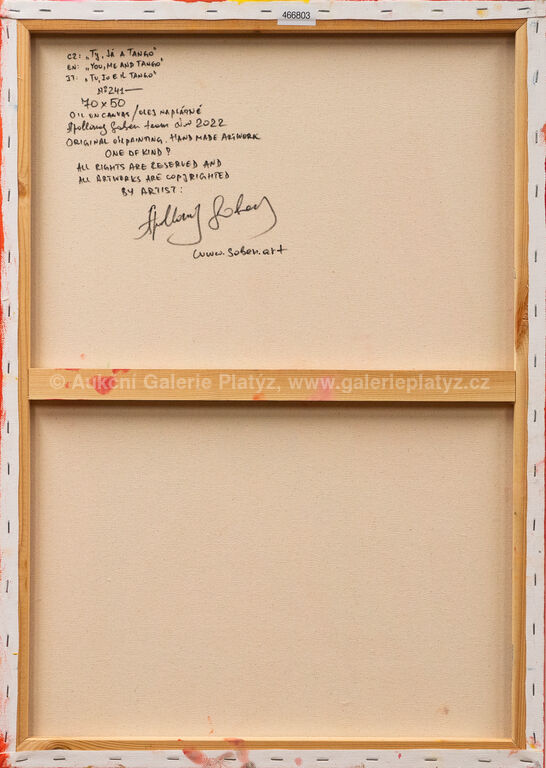 466803
CZ: „TY, JÁ A TANGO"
EN: „YOU, ME AND TANGO"
IT: „TU, IO E IL TANGO"
Nº 241—
70 x 50
OIL ON CANVAS / OLEJ NA PLÁTNĚ
Apollonij Soben 2022
ORIGINAL OIL PAINTING. HAND MADE ARTWORK
ONE OF KIND?
ALL RIGHTS ARE RESERVED AND
ALL ARTWORKS ARE COPYRIGHTED
BY ARTIST:
Apollonij Soben
www.soben.art
© Aukční Galerie Platýz, www.galerieplatyz.cz